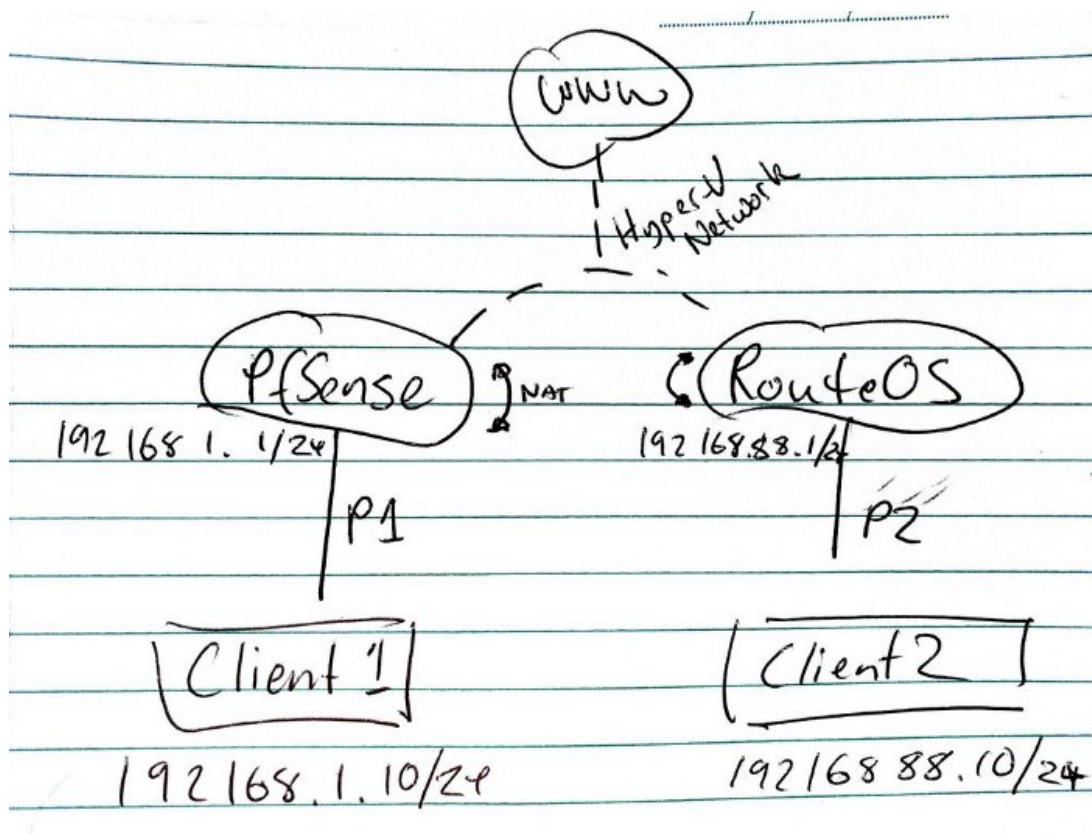 WWW
Hyper-V
Network
PfSense
NAT
RouteOS
192 168 1. 1/24
192 168.88.1/24
P1
P2
Client 1
Client 2
192 168.1.10/24
192168 88.10/24